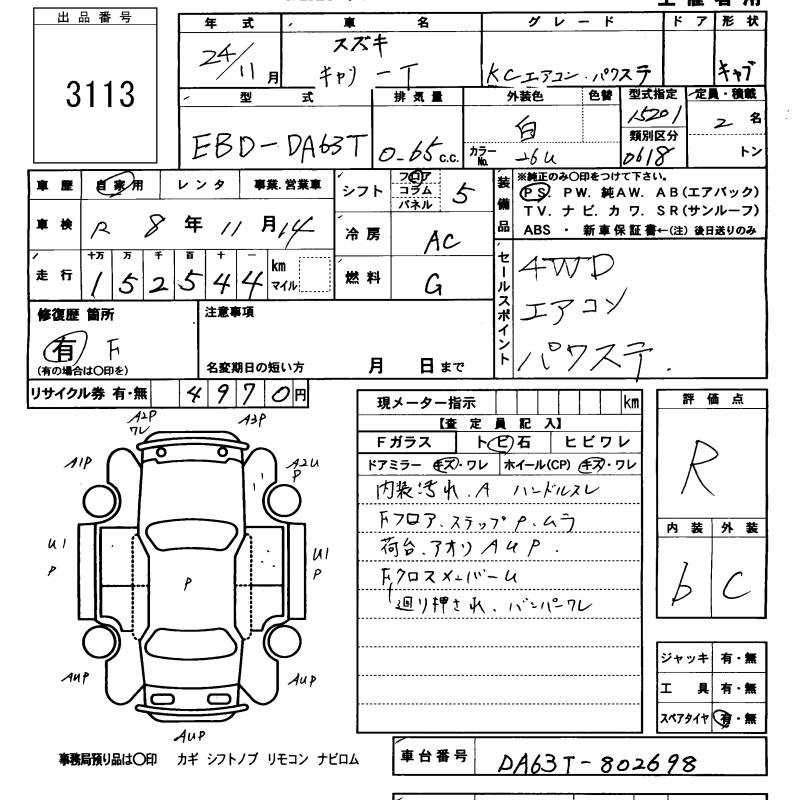 出品番号
3113
年式 車名 グレード ドア 形状
24/11月 スズキ キャリーT KCエアコン・パワステ キャブ
型式 排気量 外装色 色替 型式指定 定員・積載
EBD-DA63T 0.65c.c. 白 15201 2名
カラーNo. 26U 類別区分 0618 トン
車歴 自家用 レンタ 事業.営業車
シフト フロア コラム パネル 5
車検 R 8年 11月 14
冷房 AC
走行 十万 万 千 百 十 一
1 5 2 5 4 4 km マイル
燃料 G
装備品 ※純正のみ○印をつけて下さい。
PS. PW. 純AW. AB(エアバック)
TV. ナビ. カワ. SR(サンルーフ)
ABS ・ 新車保証書←(注) 後日送りのみ
セールスポイント
4WD
エアコン
パワステ.
修復歴 箇所
有 F
(有の場合は○印を)
注意事項
名変期日の短い方 月 日まで
リサイクル券 有・無 4970円
現メーター指示 km
【査定員記入】
Fガラス トビ石 ヒビワレ
ドアミラー キズ・ワレ ホイール(CP) キズ・ワレ
内装汚れ.A ハンドルスレ
Fフロア.ステップP.ムラ
荷台.アオリAUP.
FクロスメンバーU
廻り押され.バンパーワレ
評価点
R
内装 外装
b C
ジャッキ 有・無
工具 有・無
スペアタイヤ 有・無
A2P
ワレ
A3P
A1P
A2U
P
U1
P
P
U1
P
AUP
AUP
AUP
事務局預り品は○印 カギ シフトノブ リモコン ナビロム
車台番号 DA63T-802698